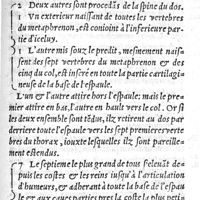 2 Deux autres sont procedãs de la spine du dos.
1 Vn exterieur naissant de toutes les vertebres
du metaphrenon, est conioint à l'inferieure par-
tie d'icelluy.
1 L'autre mis souz le predit, mesmement naiss-
sent des sept vertebres du metaphrenon & des
cinq du col, est inseré en toute la partie cartilagi-
neuse de la base de l'espaule.
L'vn & l'autre attire hors l'espaule: mais le pre-
mier attire en bas, l'autre en hault vers le col. Or si
les deux ensemble sont tẽdus, ilz retirent au dos par
derriere toute l'espaule vers les sept premieres verte-
bres du thorax, iouxte lesquelles ilz sont pareille-
ment estendus.
7 Le septieme le plus grand de tous s'esleuãt de-
puis les costes & les reins iusqu'à l'articulation
d'humeurs, & adherant à toute la base de l'espau
le & aux caues parties tire la coste la plus petit